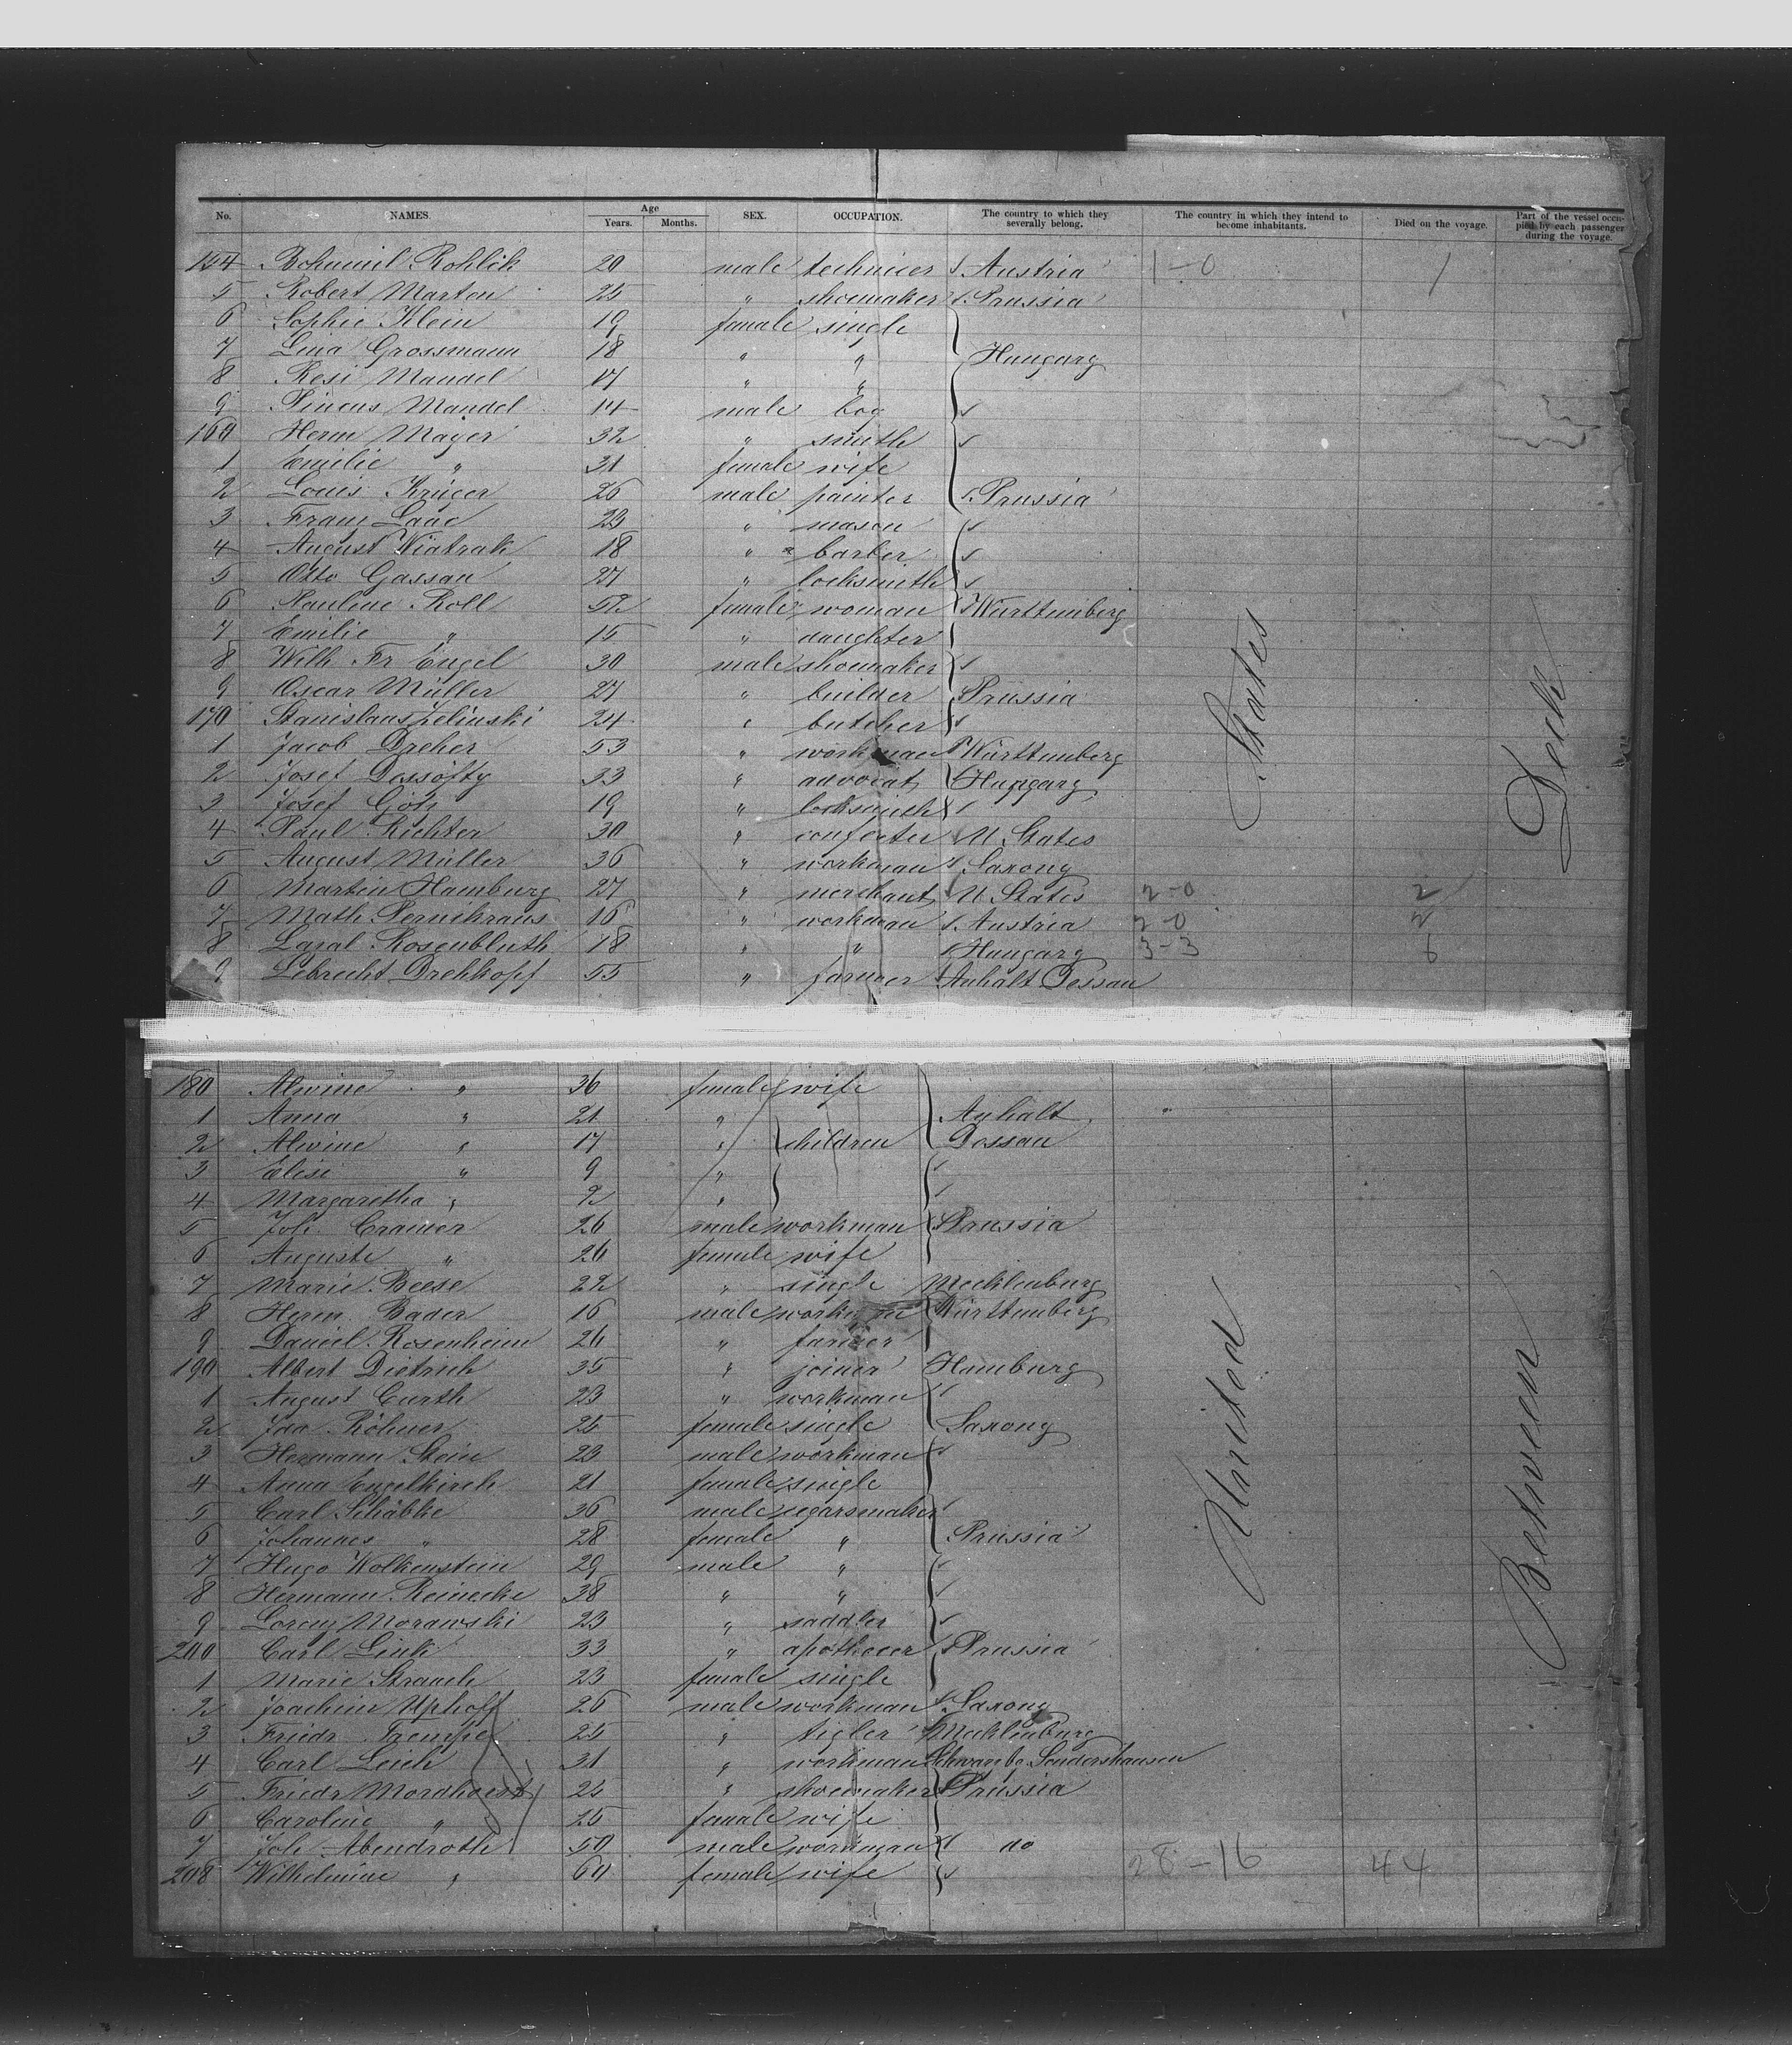 No. NAMES. Age Years. Months. SEX. OCCUPATION. The country to which they severally belong. The country in which they intend to become inhabitants. Died on the voyage. Part of the vessel occupied by each passenger during the voyage.
154 Bohumil Rohlik 20 male technicer Austria 1-0 1
5 Robert Marten 25 " shoemaker Prussia
6 Sophie Klein 19 female single
7 Lina Grossmann 18 " " Hungary
8 Resi Mandel 17 " "
9 Pincus Mandel 14 male boy
160 Herm Mayer 32 " smith
1 Emilie " 31 female wife
2 Louis Krüger 26 male painter Prussia
3 Franz Laac 23 " mason
4 August Wiatrak 18 " barber
5 Otto Gassan 27 " locksmith
6 Pauline Roll 52 female woman Württemberg
7 Emilie " 15 " daughter
8 Wilh. Fr Engel 30 male shoemaker
9 Oscar Müller 27 " builder Prussia
170 Stanislaus Zelinski 24 " butcher
1 Jacob Dreher 53 " workman Württemberg
2 Josef 33 " advocat Hungary
3 Josef Götz 19 " locksmith
4 Paul Richter 30 " confecter U. States
5 August Müller 36 " workman Saxony
6 Martin Hamburg 27 " merchant U States 2-0 2
7 Math Pernikraus 16 " workman Austria 2-0 2
8 Lazal Rosenbluth 18 " " Hungary 3-3 6
9 Lebrecht Drehkopf 55 " farmer Anhalt Dessau
180 Alwine " 36 female wife
1 Anna " 21 " Anhalt
2 Alwine " 17 " children Dessau
3 Elise " 9 "
4 Margaretha " 9 "
5 Joh. Cramer 26 male workman Prussia
6 Auguste " 26 female wife
7 Marie Beese 22 " single Mecklenburg
8 Herm. Bader 16 male workman Württemberg
9 Daniel Rosenheim 26 " farmer
190 Albert Dietrich 35 " joiner Hamburg
1 August Curth 23 " workman
2 Ida Röhmer 25 female single Saxony
3 Hermann Stein 23 male workman
4 Anna Engelkirch 21 female single
5 Carl Schäbke 36 male segarsmaker
6 Johannes " 28 female " Prussia
7 Hugo Wolkenstein 29 male "
8 Hermann Reinecke 38 " "
9 Lorenz Morawski 23 " saddler
200 Carl Link 33 " apothecer Prussia
1 Marie Strauch 23 female single
2 Joachim Uphoff 26 male workman Saxony
3 Friedr. 25 " tigler Mecklenburg
4 Carl Leich 31 " workman Schwarzbg Sondershausen
5 Friedr Mordhorst 25 " shoemaker Prussia
6 Caroline " 25 female wife
7 Joh. Abendroth 50 male workman do
208 Wilhelmine " 60 female wife 28-16 44
United States
Between Deck